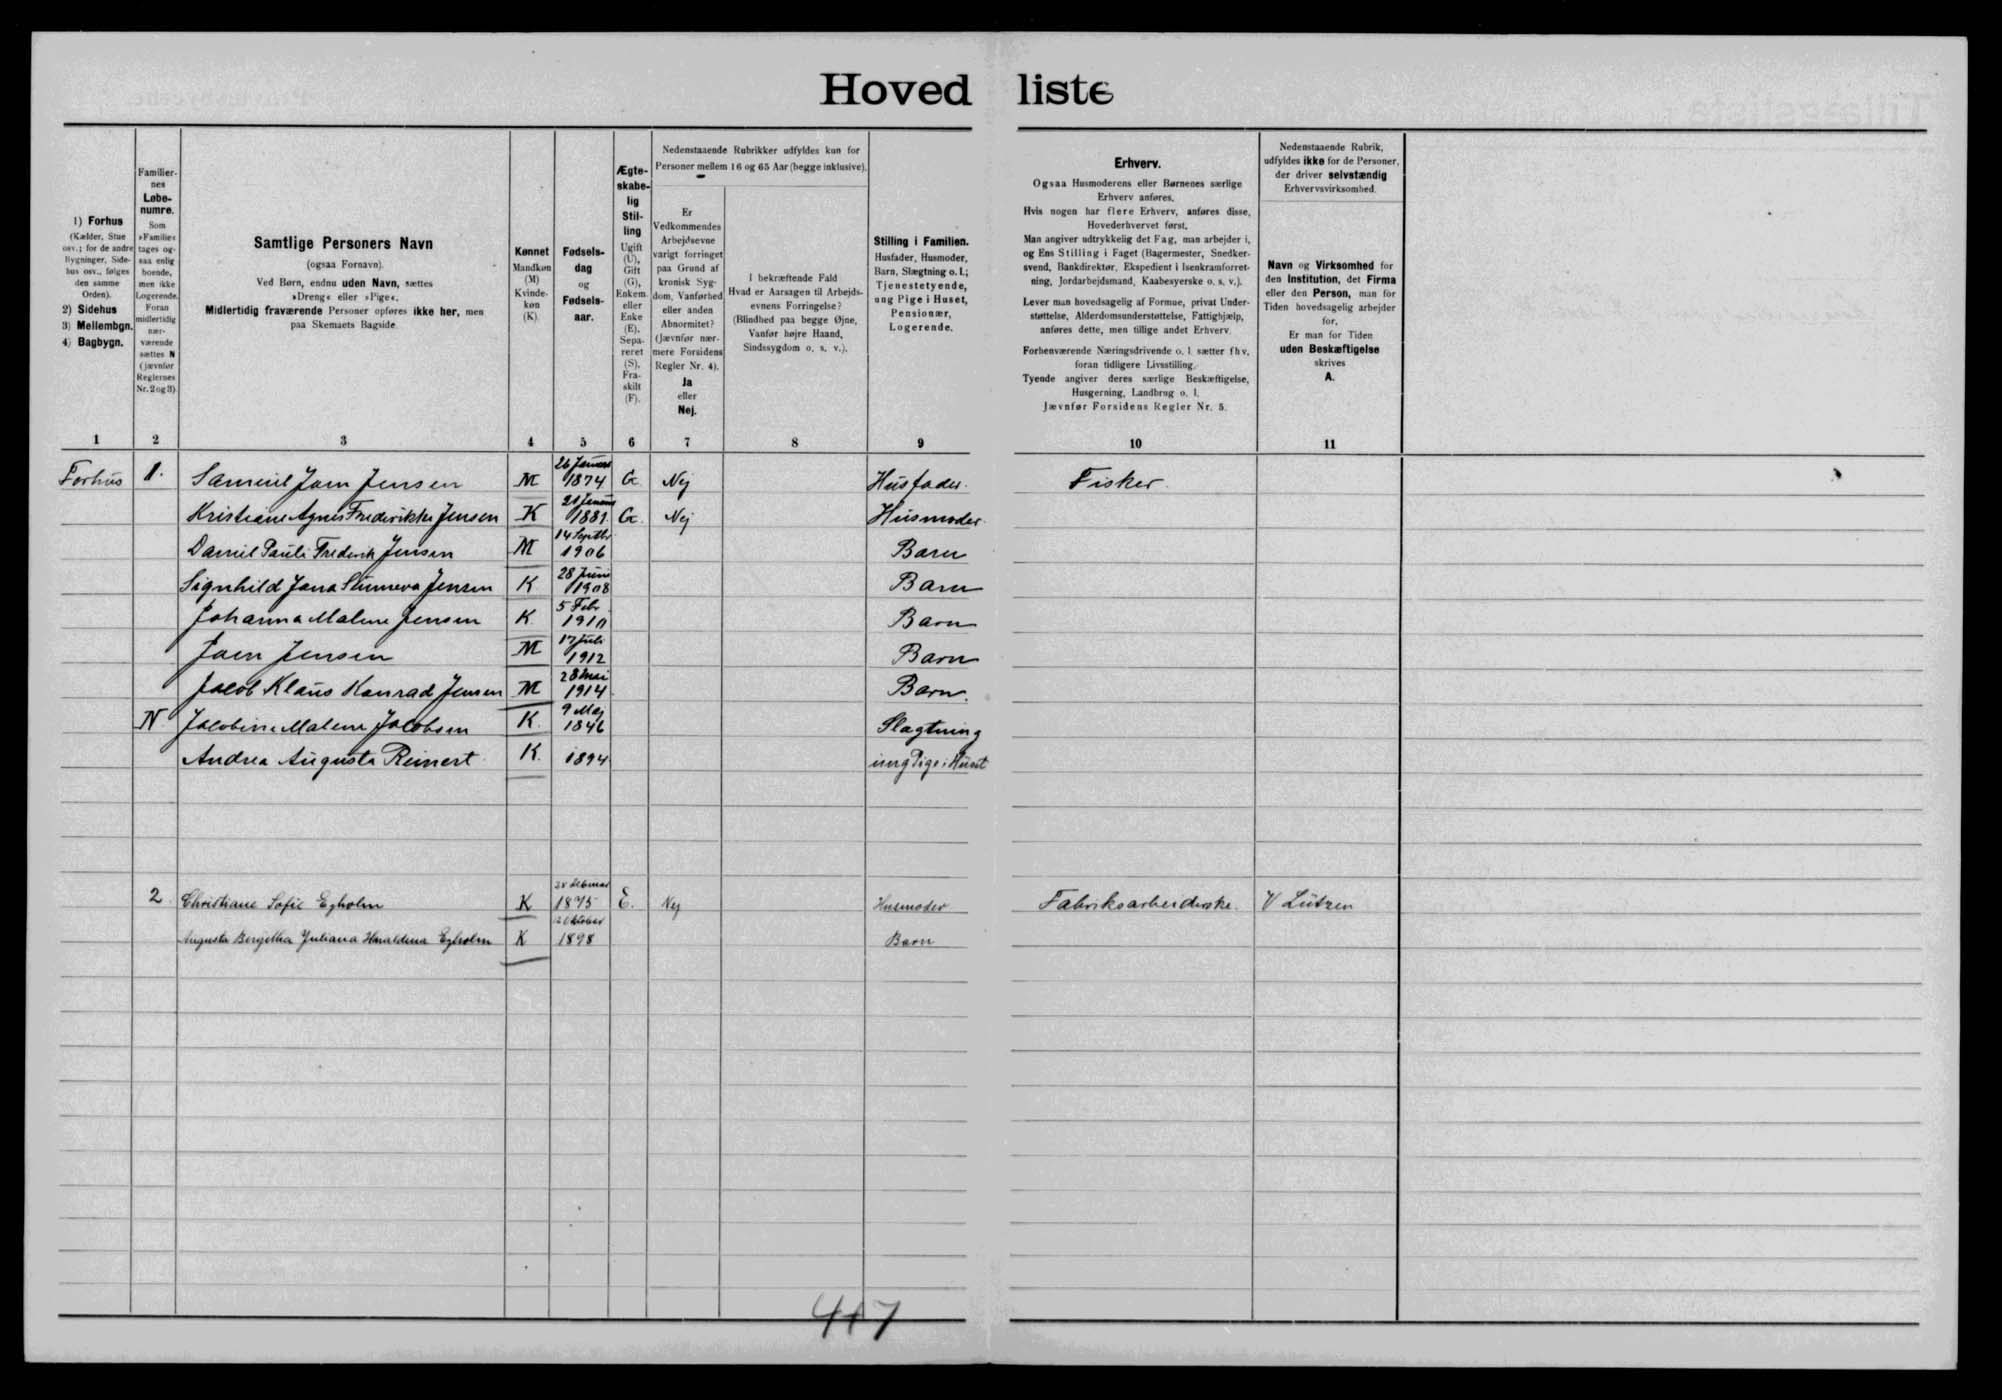 Hovedliste
1) Forhus
(Kælder, Stue
osv.; for de andre
Bygninger, Side-
hus osv., følges
den samme
Orden).
2) Sidehus
3) Mellembgn.
4) Bagbygn.
Familier-
nes
Løbe-
numre.
Som
»Familie«
tages og-
saa enlig
boende,
men ikke
Logerende.
Foran
midlertidig
nær-
værende
sættes N
(jævnfør
Reglernes
Nr. 2 og 3)
Samtlige Personers Navn
(ogsaa Fornavn).
Ved Børn, endnu uden Navn, sættes
»Dreng« eller »Pige«.
Midlertidig fraværende Personer opføres ikke her, men
paa Skemaets Bagside.
Kønnet
Mandkøn
(M)
Kvinde-
køn
(K).
Fødsels-
dag
og
Fødsels-
aar.
Ægte-
skabe-
lig
Stil-
ling
Ugift
(U),
Gift
(G),
Enkem.
eller
Enke
(E),
Sepa-
reret
(S),
Fra-
skilt
(F).
Nedenstaaende Rubrikker udfyldes kun for
Personer mellem 16 og 65 Aar (begge inklusive).
Er
Vedkommendes
Arbejdsevne
varigt forringet
paa Grund af
kronisk Syg-
dom, Vanførhed
eller anden
Abnormitet?
(Jævnfør nær-
mere Forsidens
Regler Nr. 4).
Ja
eller
Nej.
I bekræftende Fald
Hvad er Aarsagen til Arbejds-
evnens Forringelse?
(Blindhed paa begge Øjne,
Vanfør højre Haand,
Sindssygdom o. s. v.).
Stilling i Familien.
Husfader, Husmoder,
Barn, Slægtning o. l.;
Tjenestetyende,
ung Pige i Huset,
Pensionær,
Logerende.
Erhverv.
Ogsaa Husmoderens eller Børnenes særlige
Erhverv anføres.
Hvis nogen har flere Erhverv, anføres disse,
Hovederhvervet først.
Man angiver udtrykkelig det Fag, man arbejder i,
og Ens Stilling i Faget (Bagermester, Snedker-
svend, Bankdirektør, Ekspedient i Isenkramforret-
ning, Jordarbejdsmand, Kaabesyerske o. s. v.).
Lever man hovedsagelig af Formue, privat Under-
støttelse, Alderdomsunderstøttelse, Fattighjælp,
anføres dette, men tillige andet Erhverv.
Forhenværende Næringsdrivende o. l. sætter fhv.
foran tidligere Livsstilling.
Tyende angiver deres særlige Beskæftigelse,
Husgerning, Landbrug o. l.
Jævnfør Forsidens Regler Nr. 5.
Nedenstaaende Rubrik,
udfyldes ikke for de Personer,
der driver selvstændig
Erhvervsvirksomhed.
Navn og Virksomhed for
den Institution, det Firma
eller den Person, man for
Tiden hovedsagelig arbejder
for.
Er man for Tiden
uden Beskæftigelse
skrives
A.
1 2 3 4 5 6 7 8 9 10 11
Forhus 1. Samuel Joen Jensen M 26 Januar 1874 G. Nej Husfader. Fisker.
Kristiane Agnes Frederikke Jensen K 21 Januar 1881. G. Nej Husmoder.
Daniel Pauli Frederik Jensen M 14 Septbr 1906 Barn
Signhild Jana Sunneva Jensen K 28 Juni 1908 Barn
Johanna Malene Jensen K. 5 Febr 1910 Barn
Joen Jensen M 17 Juli 1912 Barn
Jacob Klaus Konrad Jensen M 28 Mai 1914 Barn.
N Jacobine Malene Jacobsen K. 9 Maj 1846 Slagtning
Andrea Augusta Reinert K. 1894 ung Pige i Huset
2 Christiane Sofie Egholm K 1875 E. Nej Husmoder Fabriksarbeiderske. V Lützen
Augusta Juliana Haraldina Egholm K Oktober 1898 Barn
417